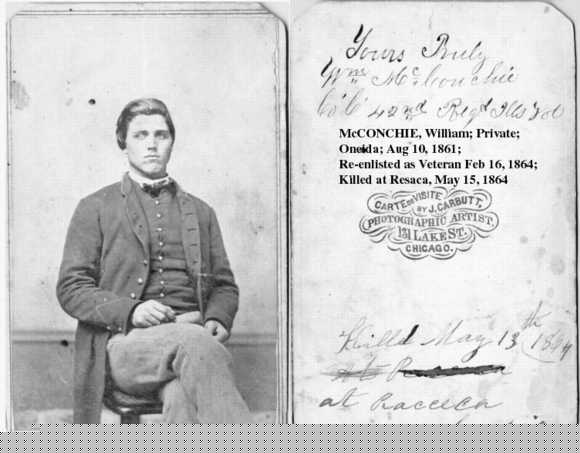 Yours Truly
Wm McConchie
Co C 42nd Regt Ills Vol
McCONCHIE, William; Private;
Oneida; Aug 10, 1861;
Re-enlisted as Veteran Feb 16, 1864;
Killed at Resaca, May 15, 1864
CARTE DE VISITE
BY J. CARBUTT,
PHOTOGRAPHIC ARTIST.
131 LAKE ST.
CHICAGO.
Killed May 13th 1864
at
at Racceca